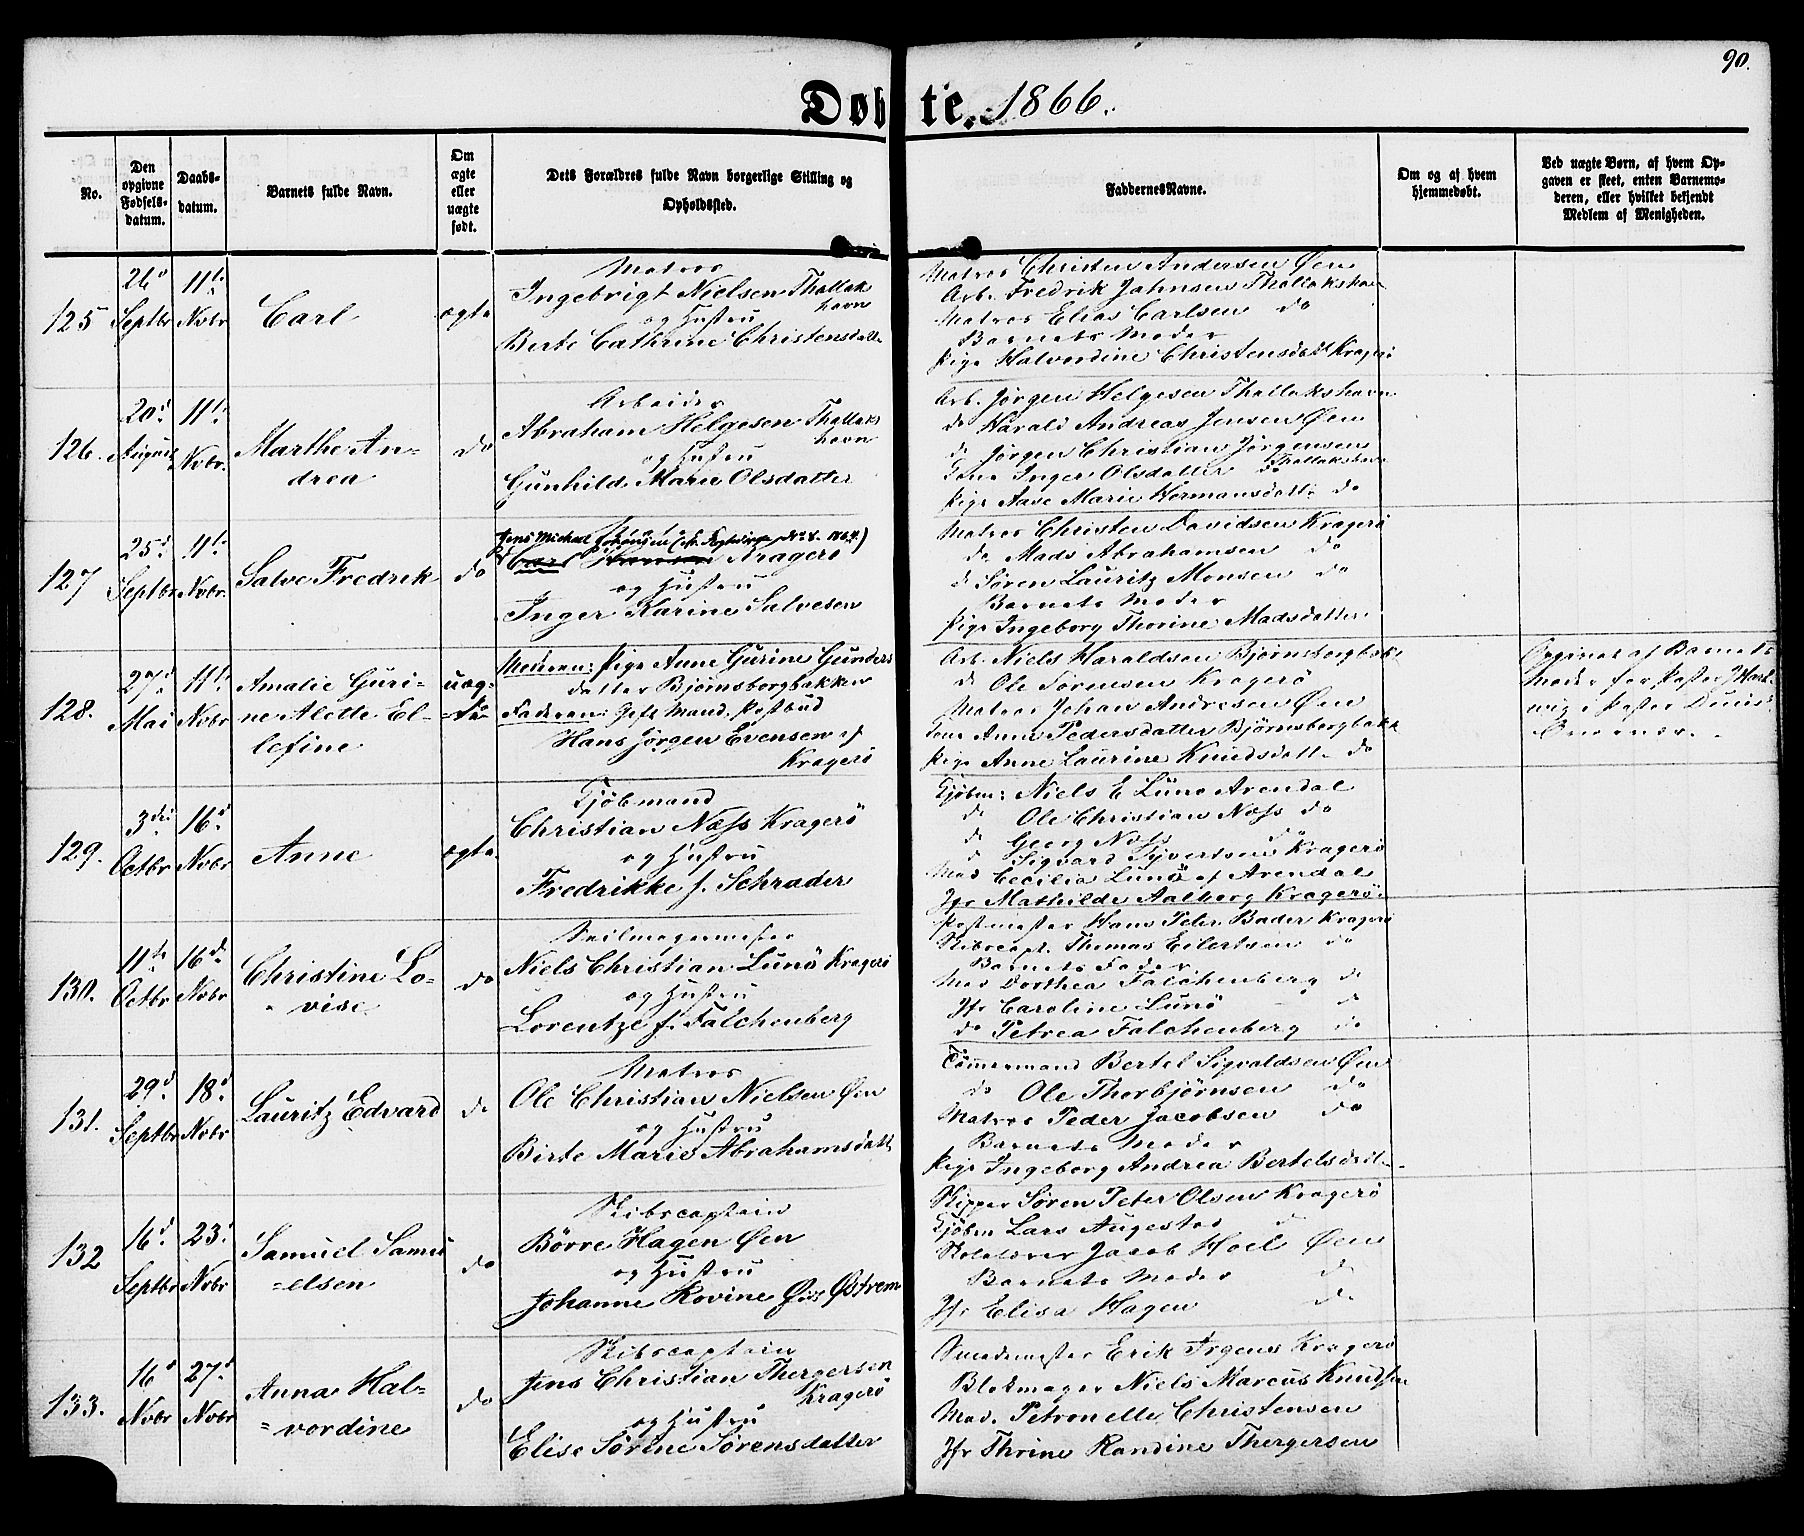 90.
Døbte. 1866.
No.
Den opgivne Fødsels-datum.
Daabs-datum.
Barnets fulde Navn.
Om ægte eller uægte født.
Dets Forældres fulde Navn borgerlige Stilling og Opholdssted.
Faddernes Navne.
Om og af hvem hjemmedøbt.
Ved uægte Børn, af hvem Opgaven er skeet, enten Barnemoderen, eller hvilket bekjendt Medlem af Menigheden.
125
26d Septbr
11te Novbr
Carl
ægte
Matros
Ingebrigt Nielsen Thallakshavn
og Hustru
Berte Cathrine Christensdatter
Matros Christen Andersen Øen
Arb. Fredrik Johnsen Thallakshavn
Matros Elias Carlsen do
Barnets Moder
Pige Halvordine Christensdatt Kragerö
126.
20d August
11te Novbr.
Marthe Andrea
do
Arbeider
Abraham Helgesen Thallakshavn
og Hustru
Gunhild Marie Olsdatter
Arb. Jørgen Helgesen Thallakshavn
do Harald Andreas Jensen Øen
do Jørgen Christian Jörgensen
Kone Inger Olsdatter Thallakshavn
Pige Aase Marie Hermansdatt. do
127
25d Septbr
11te Novbr.
Salve Fredrik
do
Jens Michael Johansen
Kragerö
og Hustru
Inger Karine Salvesen
Matros Christen Davidsen Kragerö
do Mads Abrahamsen do
d Sören Lauritz Monsen do
Barnets Moder
Pige Ingeborg Thorine Madsdatter.
128.
27d Mai
11te Novbr
Amalie Gurine Alette Ellefine
uægte
Moderen: Pige Anne Gurine Gundersdatter Bjørnsborgbakken
Faderen: Gift Mand, Postbud
Hans Jørgen Evensen af
Kragerö
Arb. Niels Haraldsen Bjørnsborgbak
d Ole Sørensen Kragerö
Matros Johan Andresen Øen
Kone Anne Pedersdatter Bjørnsborgbakk
Pige Anne Laurine Knudsdatt. do
Opgivet af Barnets
Moder for Pastor Hartwig i Pastor Duus
129.
3die Octbr
16d Novbr
Anne
ægte
Kjöbmand
Christian Næss Kragerö
og Hustru
Fredrikke f. Schrader
Kjøbm: Niels E Lunö Arendal
d Ole Christian Næss do
d Georg Næss do
d Sigvard Syvertsen Kragerö
Mad Cecilia Lunö af Arendal
Jfr Mathilde Aalborg Kragerö.
130.
11te Octbr
16de Novbr
Christine Lovise
do
Seilmagermester
Niels Christian Lunö Kragerö
og Hustru
Lorentze f. Falchenberg
Postmester Hans Peter Bader Kragerö
Skibscapt. Thomas Eilertsen do
Barnets Fader
Mad Dorthea Falchenberg d
Jfr Caroline Lunö d
do Petrea Falchenberg do
131.
29d Septbr
18d Novbr
Lauritz Edvard
do
Matros
Ole Christian Nielsen Øen
og Hustru
Birte Marie Abrahamsdatt.
Tömmermand Bertel Sigvaldsen Øen
do Ole Thorbjörnsen do
Matros Peder Jacobsen do
Barnets Moder
Pige Ingeborg Andrea Bertelsdatt.
132
16d. Septbr
23d Novbr
Samuel Samuelsen
do
Skibscaptein
Börre Hagen Øen
og Hustru
Johanne Rovine Østrem
Skipper Sören Peter Olsen Kragerö
Kjøbm Lars Augestad d
Skolelærer Jacob Hoel Øen
Barnets Moder d
Jfr Elisa Hagen do
133.
16d Novbr
27d Novbr
Anna Halvordine
do
Skibscaptein
Jens Christian Thergersen
Kragerö
og Hustru
Elise Sörine Sörensdatter
Smedemester Erik Irgens Kragerö
Blokmager Niels Marcus Knudsen
Mad. Petronelle Christensen
Jfr Thrine Randine Thergersen